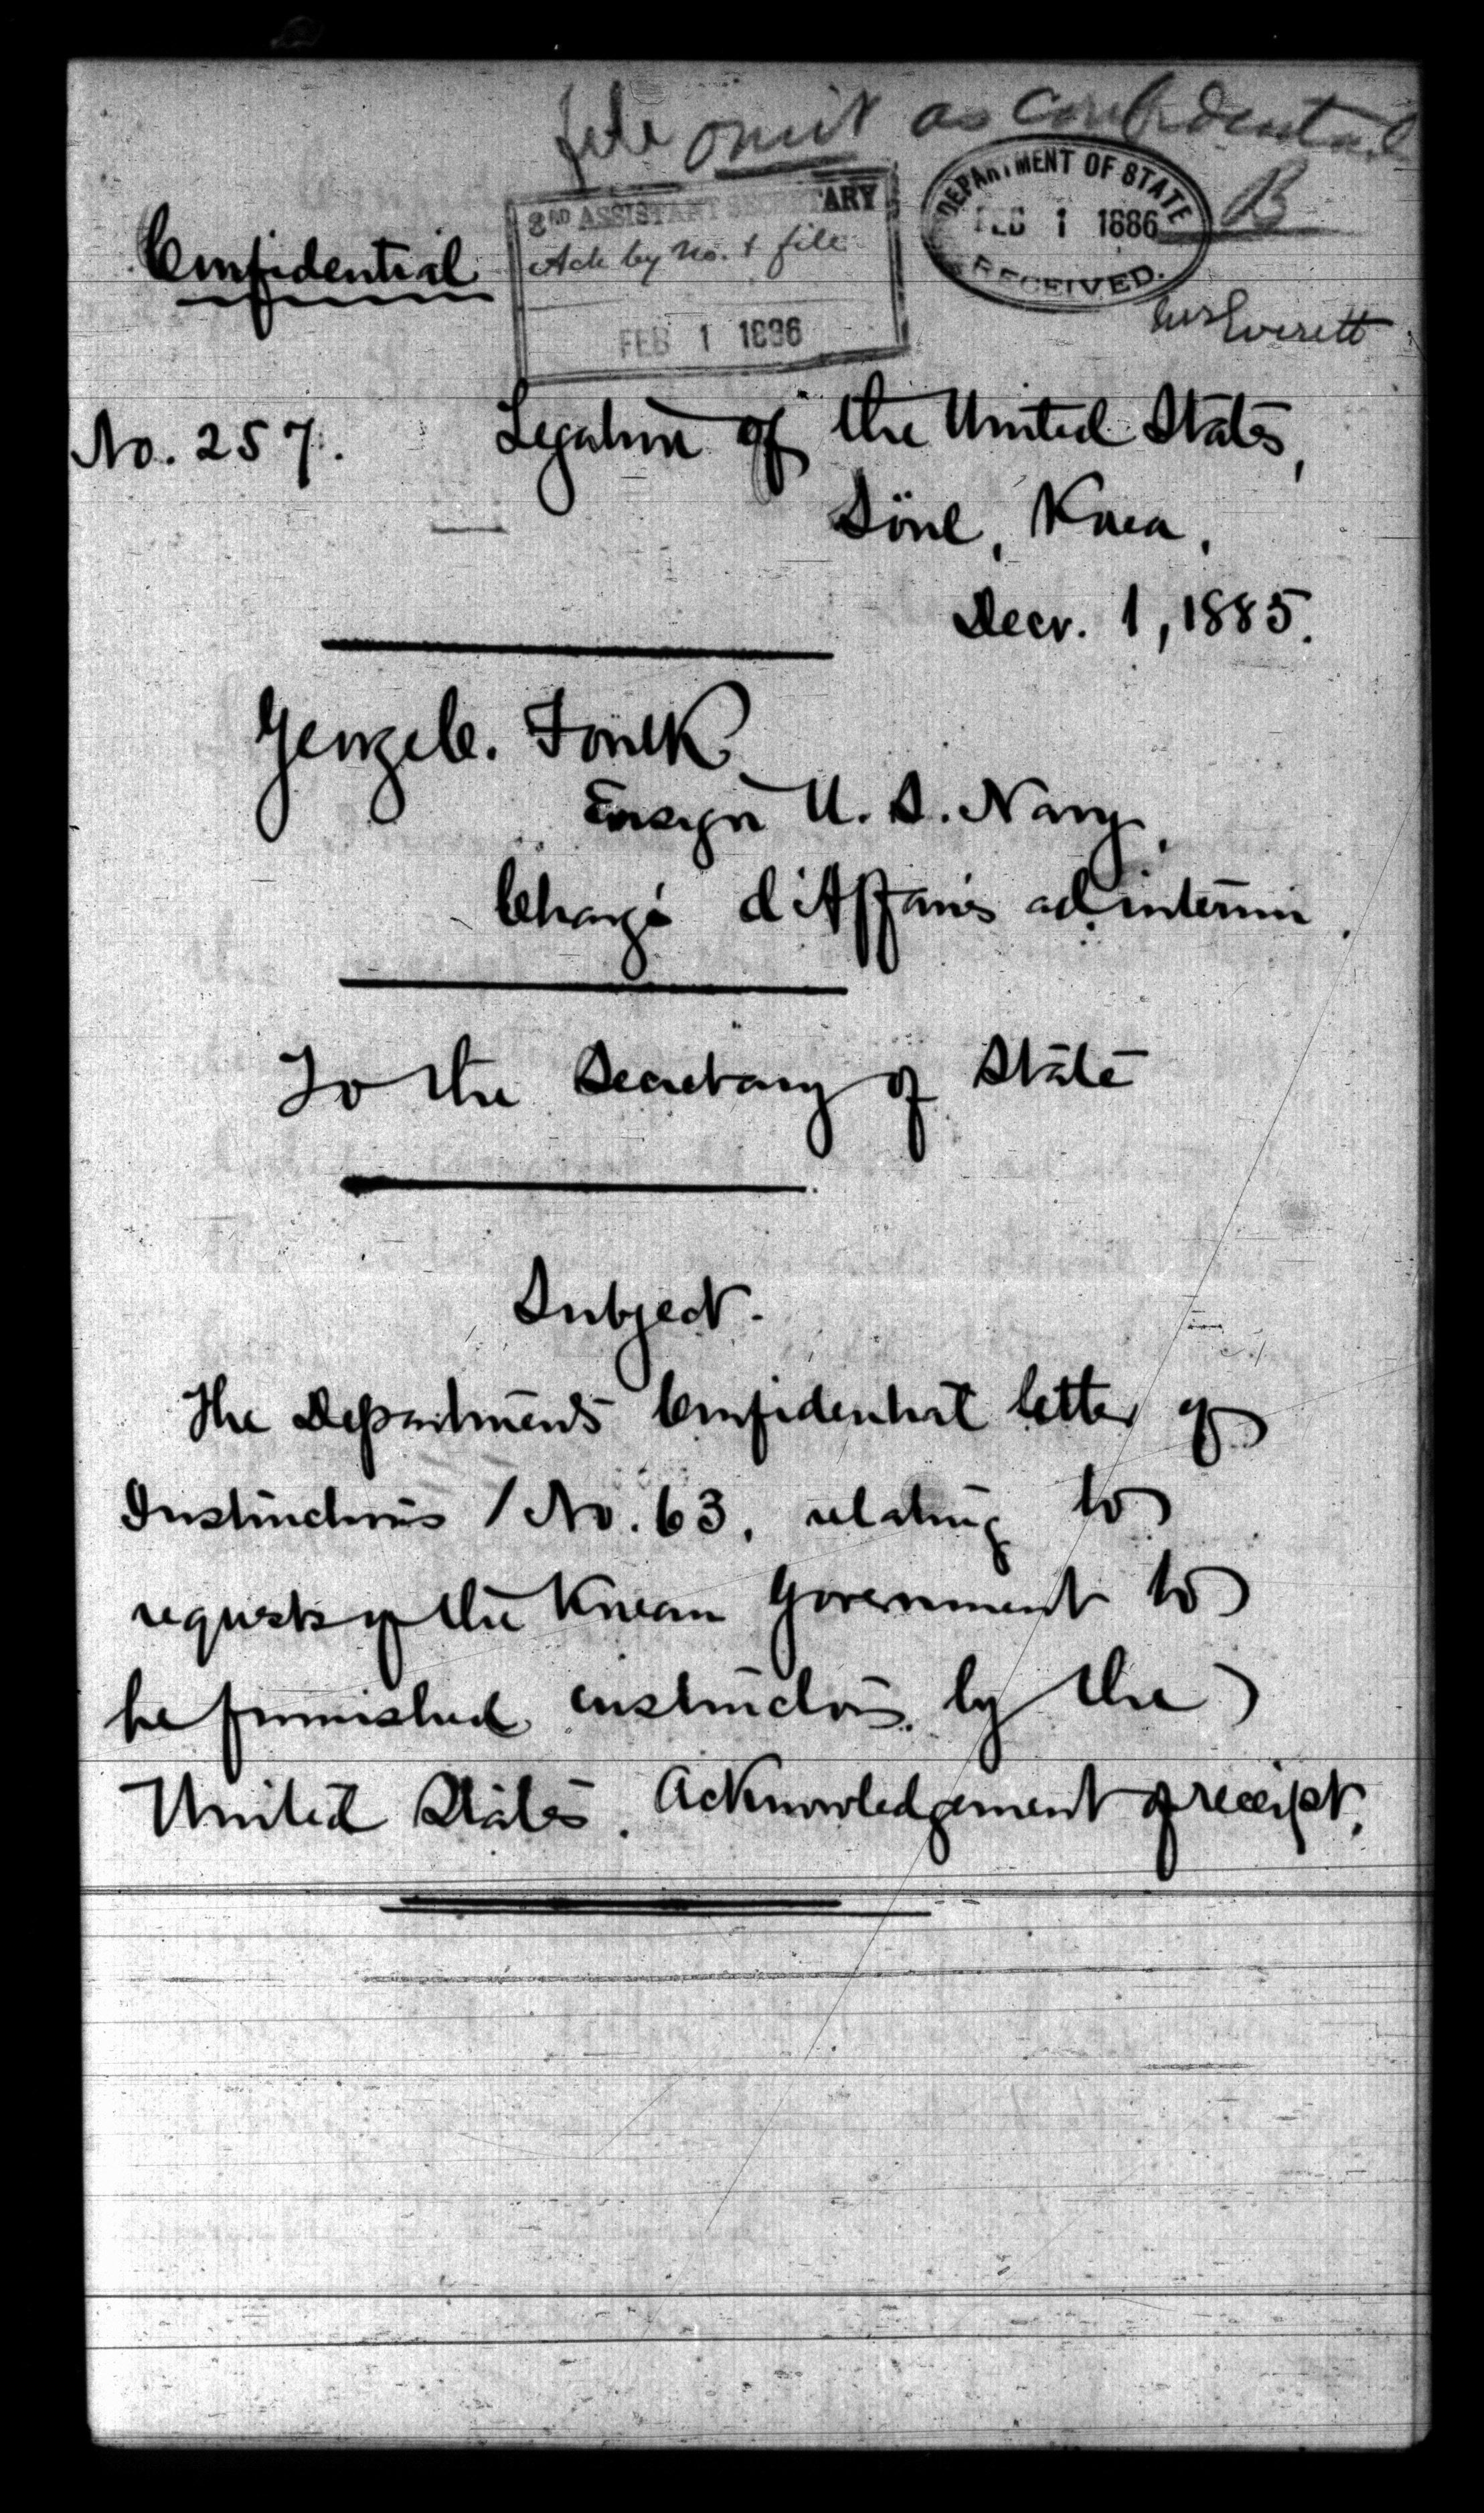 file omit as confidential
B
2ND ASSISTANT SECRETARY
Ack by No. & file
FEB 1 1886
DEPARTMENT OF STATE
FEB 1 1886
RECEIVED.
Confidential
Everett
No. 257. Legation of the United States,
Söul, Korea,
Decr. 1, 1885.
George C. Foulk
Ensign U. S. Navy,
Chargé d'Affaires ad interim.
To the Secretary of State
Subject.
The Department's Confidential letter of
Instructions / No. 63, relating to
requests of the Korean Government to
be furnished instructors by the
United States. Acknowledgement of receipt.